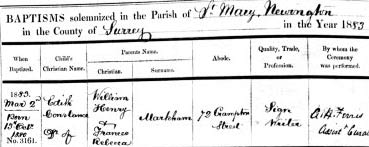 BAPTISMS solemnized in the Parish of St Mary, Newington
in the County of Surrey in the Year 1883
When Baptized. Child's Christian Name. Parents Name. Abode. Quality, Trade, or Profession. By whom the Ceremony was performed.
Christian. Surname.
1883. Mar 2d Born 15 Oct. 1880 No. 3161.
Edith Constance Dr of
William Henry & Frances Rebecca
Markham
72 Crampton Street
Sign Writer
Assist Curate